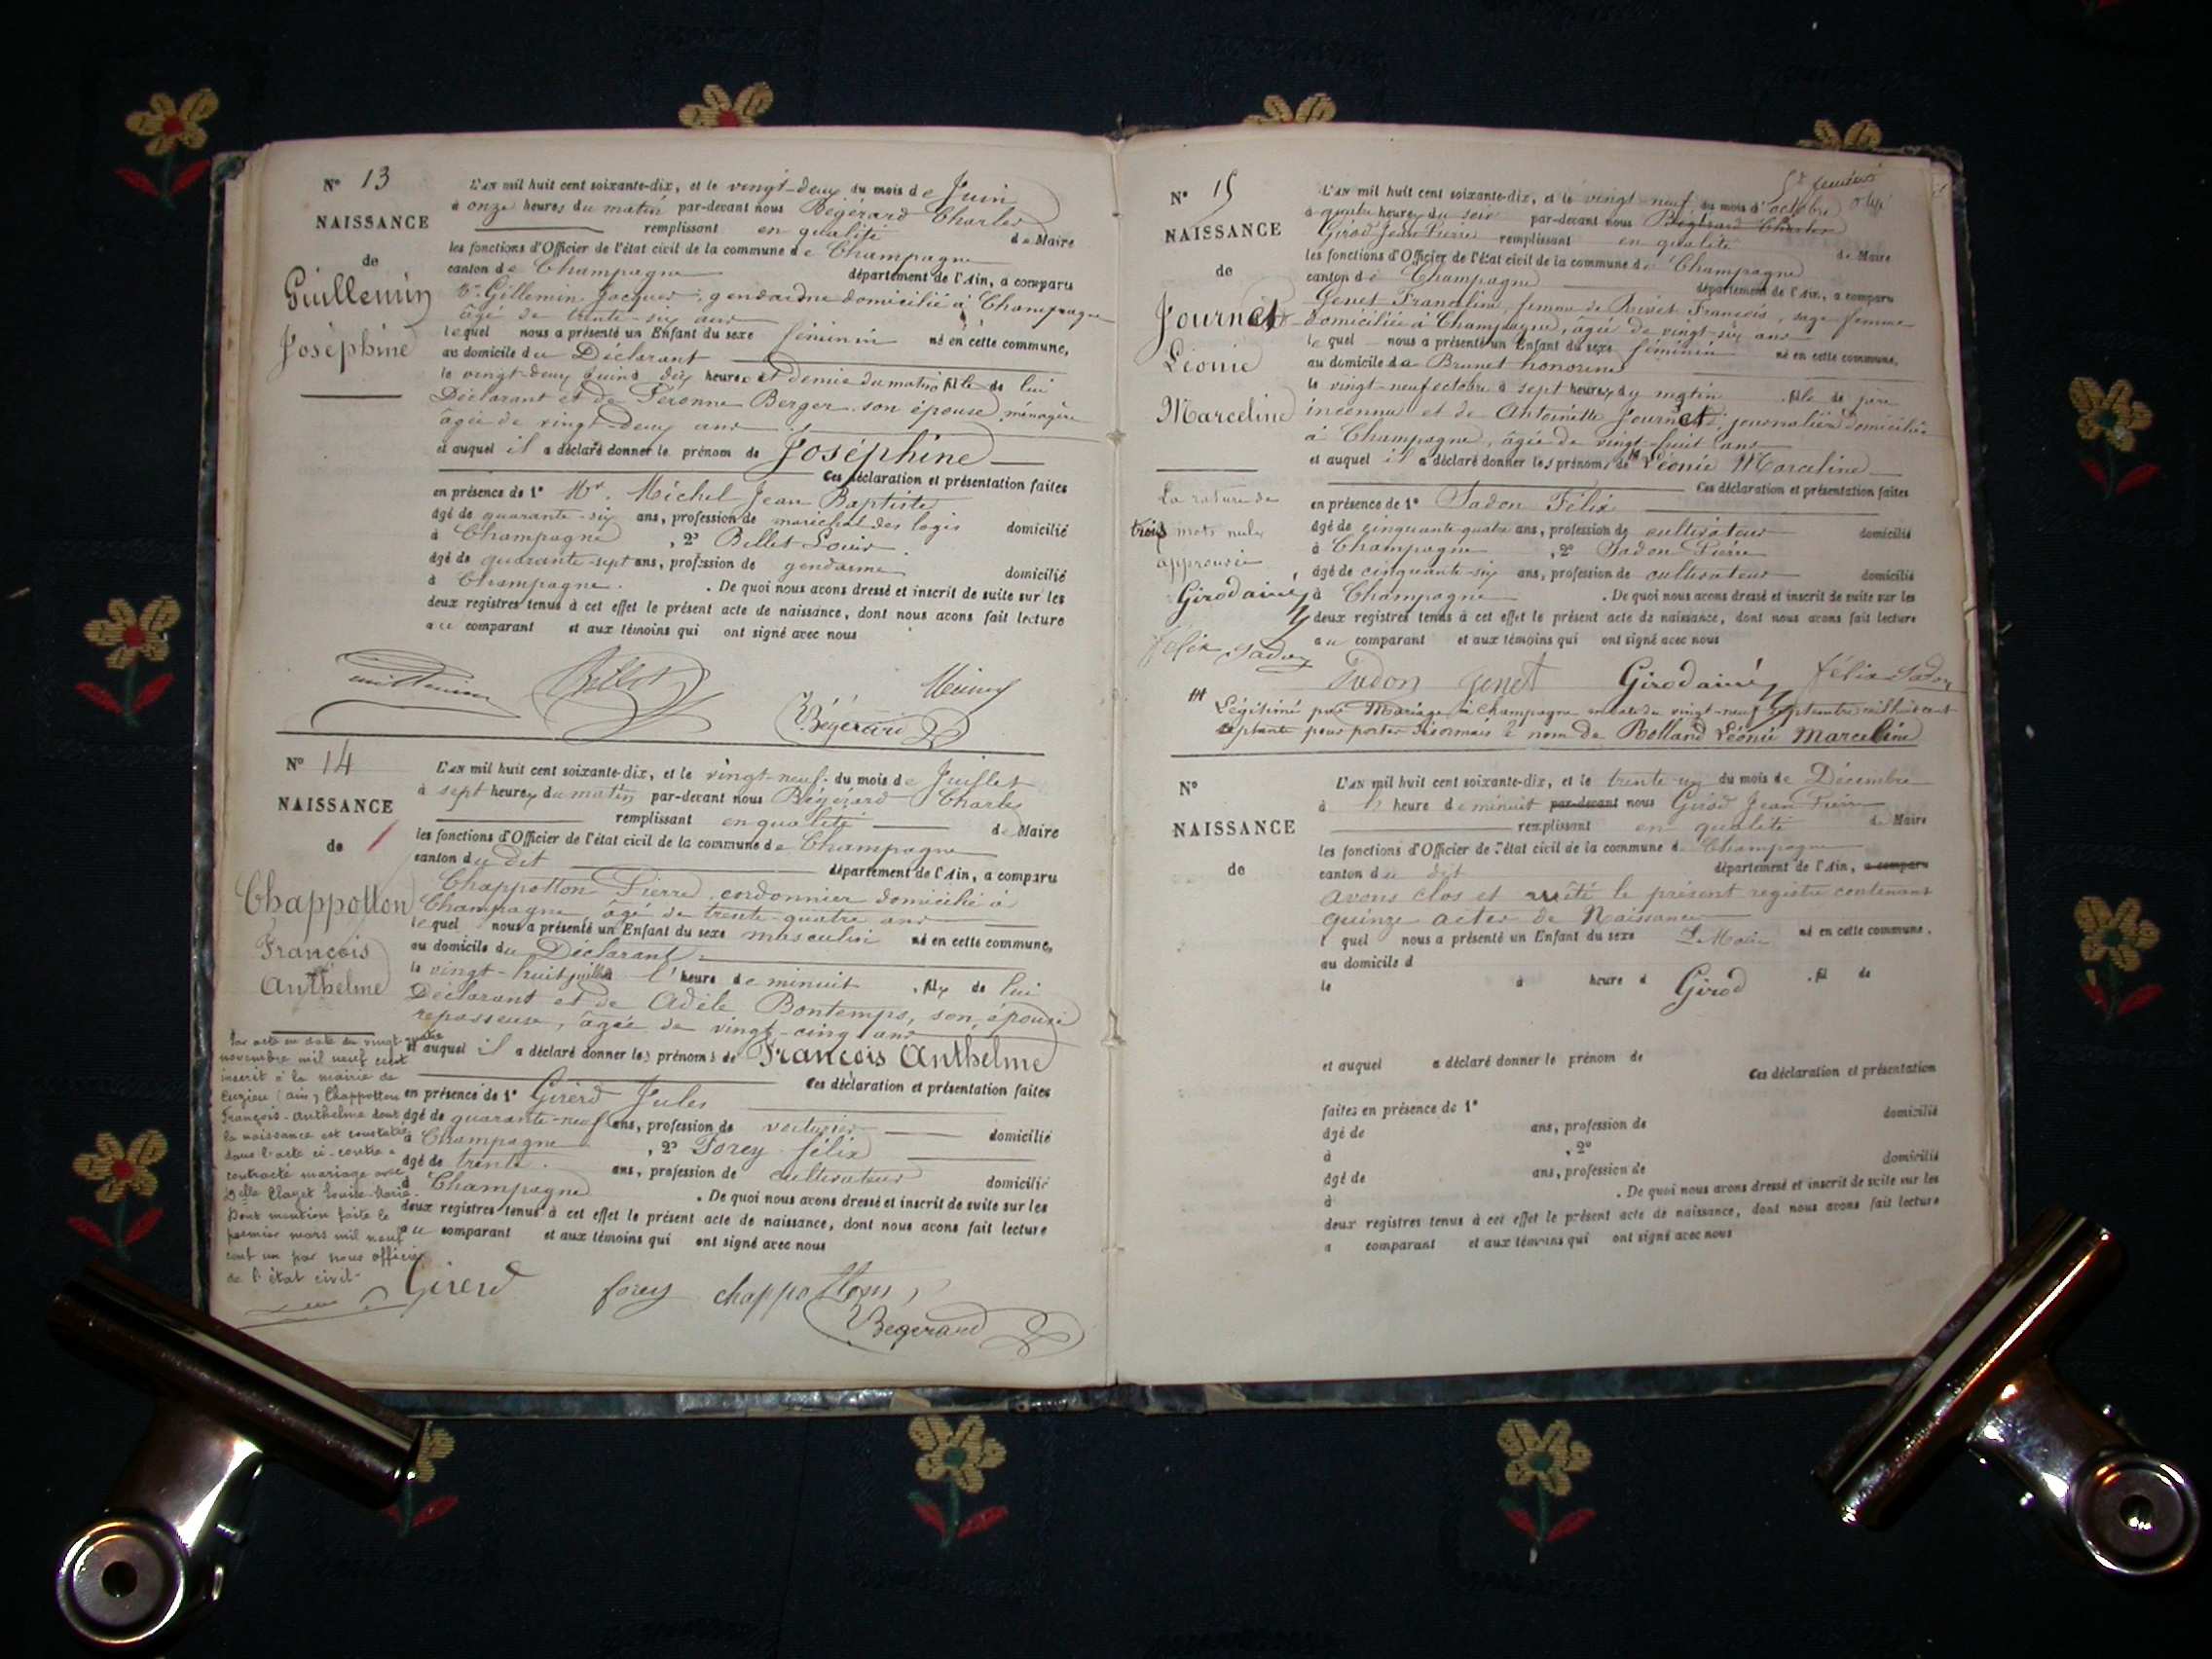 N° 13
NAISSANCE
de
Guillemin
Joséphine
L'AN mil huit cent soixante-dix, et le vingt-deux du mois de Juin
à onze heures du matin par-devant nous Bégérard Charles
remplissant en qualité de Maire
les fonctions d'Officier de l'état civil de la commune de Champagne
canton de Champagne département de l'Ain, a comparu
Gillemin Jacques, gendarme domicilié à Champagne
âgé de trente-six ans
lequel nous a présenté un Enfant du sexe féminin né en cette commune,
au domicile du Déclarant
le vingt-deux juin à dix heures et demie du matin fille de lui
Déclarant et de Péronne Berger son épouse, ménagère
âgée de vingt-deux ans
et auquel il a déclaré donner le prénom de Joséphine
Ces déclaration et présentation faites
en présence de 1° Mr. Michel Jean Baptiste
âgé de quarante-six ans, profession de maréchal des logis domicilié
à Champagne , 2° Billet Louis
âgé de quarante-sept ans, profession de gendarme domicilié
à Champagne . De quoi nous avons dressé et inscrit de suite sur les
deux registres tenus à cet effet le présent acte de naissance, dont nous avons fait lecture
au comparant et aux témoins qui ont signé avec nous
Billet
Bégérard
N° 14
NAISSANCE
de
Chappotton
François
Anthelme
L'AN mil huit cent soixante-dix, et le vingt-neuf du mois de Juillet
à sept heures du matin par-devant nous Bégérard Charles
remplissant en qualité de Maire
les fonctions d'Officier de l'état civil de la commune de Champagne
canton du dit département de l'Ain, a comparu
Chappotton Pierre, cordonnier domicilié à
Champagne, âgé de trente-quatre ans
lequel nous a présenté un Enfant du sexe masculin né en cette commune,
au domicile du Déclarant
le vingt-huit juillet à l'heure de minuit , fils de lui
Déclarant et de Adèle Bontemps, son épouse
repasseuse, âgée de vingt-cinq ans
et auquel il a déclaré donner les prénoms de François Anthelme
Ces déclaration et présentation faites
en présence de 1° Girerd Jules
âgé de quarante-neuf ans, profession de voiturier domicilié
à Champagne , 2° Forey félix
âgé de trente ans, profession de cultivateur domicilié
à Champagne . De quoi nous avons dressé et inscrit de suite sur les
deux registres tenus à cet effet le présent acte de naissance, dont nous avons fait lecture
au comparant et aux témoins qui ont signé avec nous
Par acte en date du vingt-quatre
novembre mil neuf cent
inscrit à la mairie de
(ain) Chappotton
François-Anthelme dont
la naissance est constatée
dans l'acte ci-contre a
contracté mariage avec
Delle Clayet Louise-Marie
Dont mention faite le
premier mars mil neuf
cent un par nous officier
de l'état civil
Girerd forey chappotton
Bégérard
N° 15
NAISSANCE
de
Journet
Léonie
Marceline
L'AN mil huit cent soixante-dix, et le vingt-neuf du mois d'octobre
à quatre heures du soir par-devant nous Bégérard Charles
Girod Jean Pierre remplissant en qualité de Maire
les fonctions d'Officier de l'état civil de la commune de Champagne
canton de Champagne département de l'Ain, a comparu
Genet Franceline, femme de Rivet François, sage femme
domiciliée à Champagne, âgée de vingt-six ans
lequel nous a présenté un Enfant du sexe féminin né en cette commune,
au domicile de Brunet honorine
le vingt-neuf octobre à sept heures du matin , fille de père
inconnu et de Antoinette Journet, journalière domiciliée
à Champagne, âgée de vingt-huit ans
et auquel il a déclaré donner les prénoms de Léonie Marceline
Ces déclaration et présentation faites
en présence de 1° Tadon Félix
âgé de cinquante-quatre ans, profession de cultivateur domicilié
à Champagne , 2° Tadon Pierre
âgé de cinquante-six ans, profession de cultivateur domicilié
à Champagne . De quoi nous avons dressé et inscrit de suite sur les
deux registres tenus à cet effet le présent acte de naissance, dont nous avons fait lecture
au comparant et aux témoins qui ont signé avec nous
La rature de
trois mots nuls
approuvée
Girod
félix Tadon
Tadon Genet Girod félix Tadon
Légitimée par Mariage à Champagne en date du vingt-neuf septembre mil huit cent
septante pour porter désormais le nom de Bolland Léonie Marceline
N°
NAISSANCE
de
L'AN mil huit cent soixante-dix, et le trente-un du mois de Décembre
à l' heure de minuit par-devant nous Girod Jean Pierre
remplissant en qualité de Maire
les fonctions d'Officier de l'état civil de la commune de Champagne
canton du dit département de l'Ain, a comparu
avons clos et arrêté le présent registre contenant
quinze actes de Naissance
l quel nous a présenté un Enfant du sexe Le Maire né en cette commune,
au domicile d
le à heure d Girod , fil de
et auquel a déclaré donner le prénom de
Ces déclaration et présentation
faites en présence de 1°
âgé de ans, profession de domicilié
à , 2°
âgé de ans, profession de domicilié
à . De quoi nous avons dressé et inscrit de suite sur les
deux registres tenus à cet effet le présent acte de naissance, dont nous avons fait lecture
a comparant et aux témoins qui ont signé avec nous